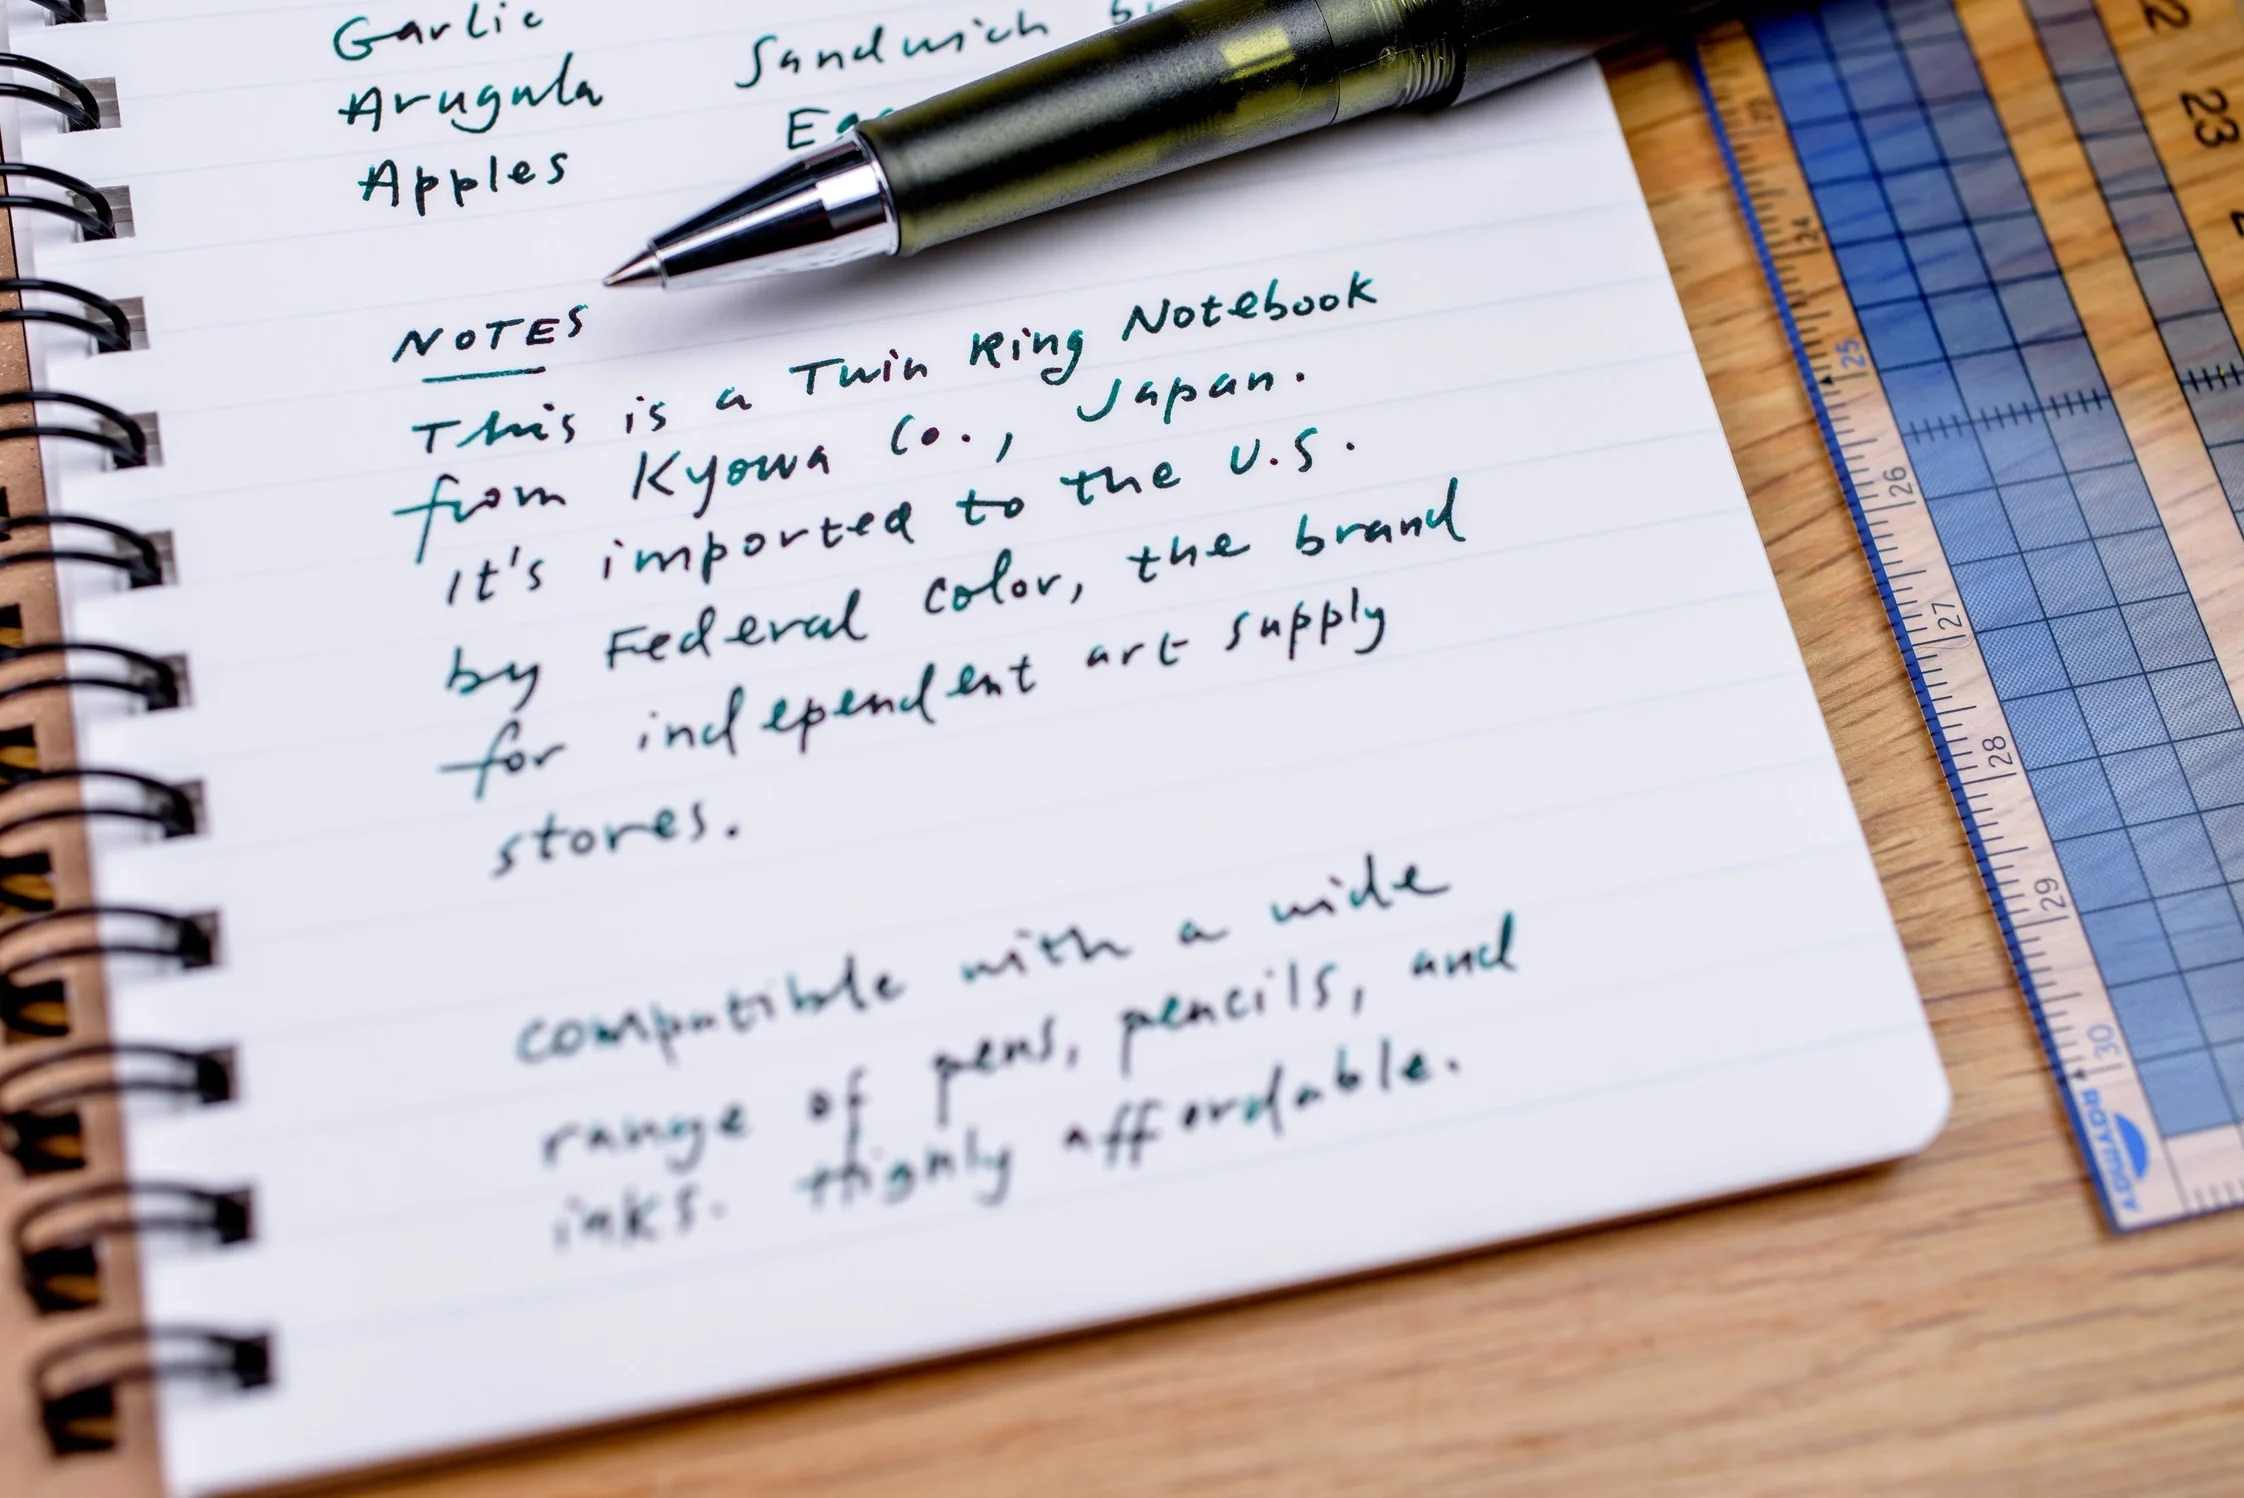 Garlic
Arugula
Apples
Sandwich
NOTES
This is a Twin Ring Notebook
from Kyowa Co., Japan.
It's imported to the U.S.
by Federal Color, the brand
for independent art supply
stores.
compatible with a wide
range of pens, pencils, and
inks. Highly affordable.
23
25
26
27
28
29
30